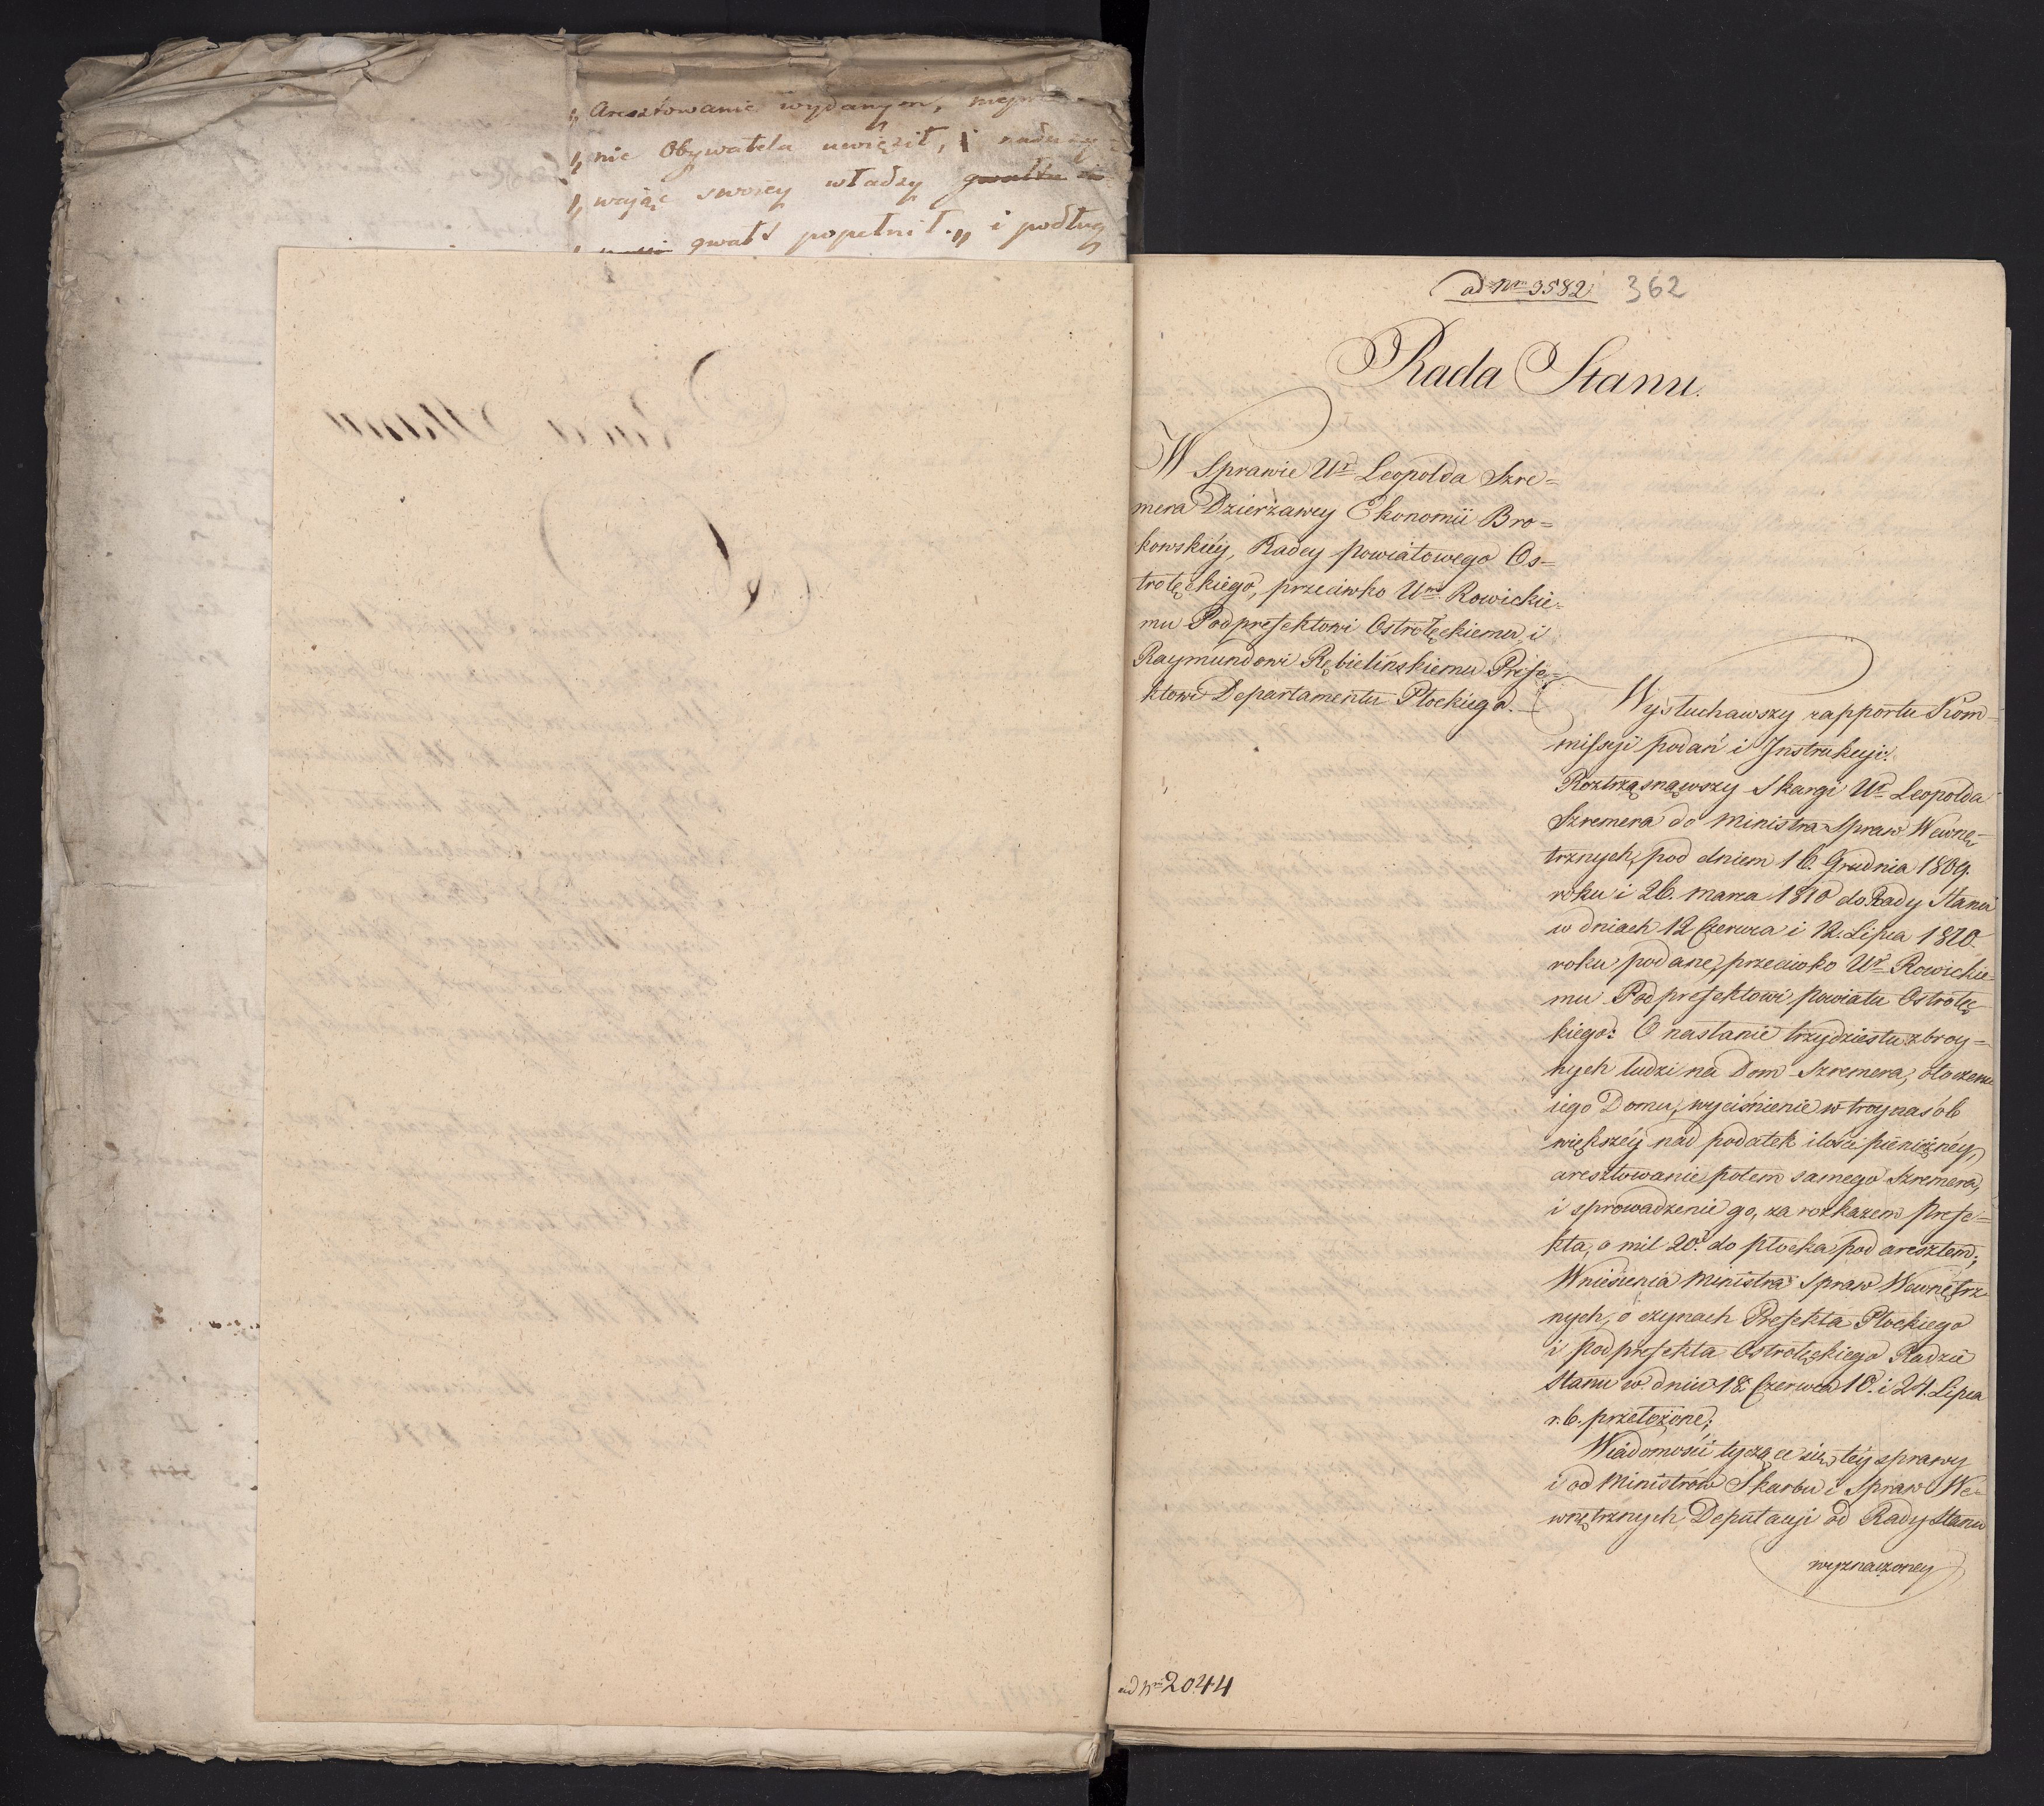 „ Aresztowanie wydanym,
„ nie Obywatela uwięził, i naduży
„ wając swoiey władzy gwałtu
gwałt popełnił.„ i podług
ad Nrm 3582 362
Rada Stanu.
W Sprawie Ur Leopolda Szre=
mera Dzierżawcy Ekonomii Bro=
kowskiéy, Radcy powiatowego Os=
trołęckiego, przeciwko Umu Rowickie=
mu Podprefektowi Ostrołęckiemu, i
Raymundowi Rębielińskiemu Prefe=
ktowi Departamentu Płockiego.
Wysłuchawszy rapportu Kom=
missyi podań i Instrukcyi.
Roztrząsnąwszy Skargi Ur Leopolda
Szremera do Ministra Spraw Wewnę=
trznych, pod dniem 16. Grudnia 1809.
roku i 26. marca 1810 do Rady Stanu
w dniach 12 Czerwca i 12. Lipca 1810.
roku podane, przeciwko Ur Rowickie=
mu Podprefektowi powiatu Ostrołę=
kiego: O nasłanie trzydziestu zbroy=
nych ludzi na Dom Szremera, otoczenie
iego Domu, wyciśnienie w troynasób
większéy nad podatek ilości pieniężnéy,
aresztowanie potem samego Szremera,
i sprowadzenie go, za rozkazem Prefe=
kta, o mil 20. do płocka pod aresztem;
Wniesienia Ministra Spraw Wewnętrz=
nych, o czynach Prefekta Płockiego
i podprefekta Ostrołęckiego Radzie
Stanu w dniu 18 Czerwca 10. i 24. Lipca
r. b. przełożone;
Wiadomości tyczące się téy sprawy
i od Ministrów Skarbu i Spraw We=
wnętrznych Deputacyi od Rady Stanu
wyznaczoney
ad Nrm 2044